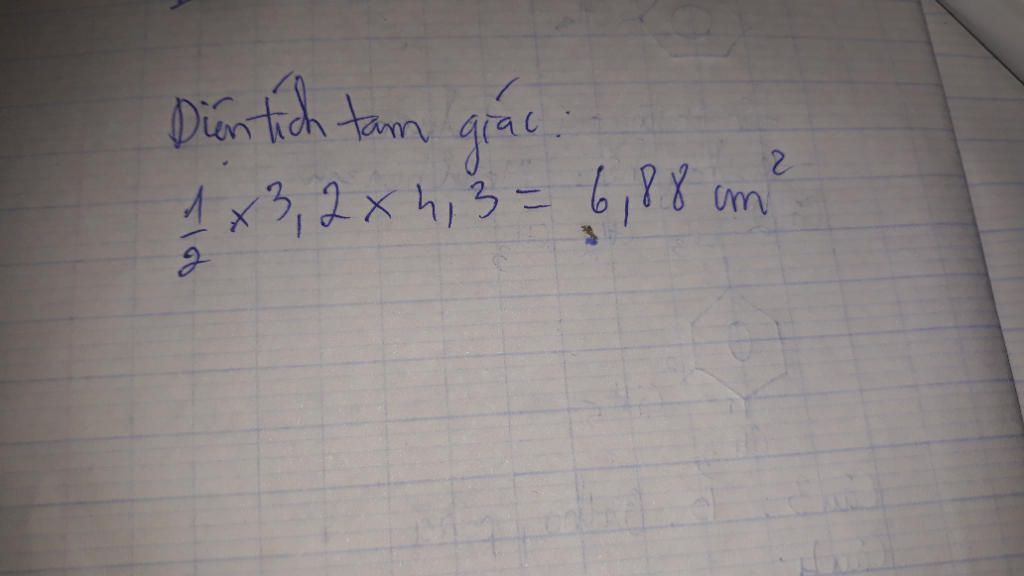 Diện tích tam giác:
1/2 × 3,2 × 4,3 = 6,88 cm²